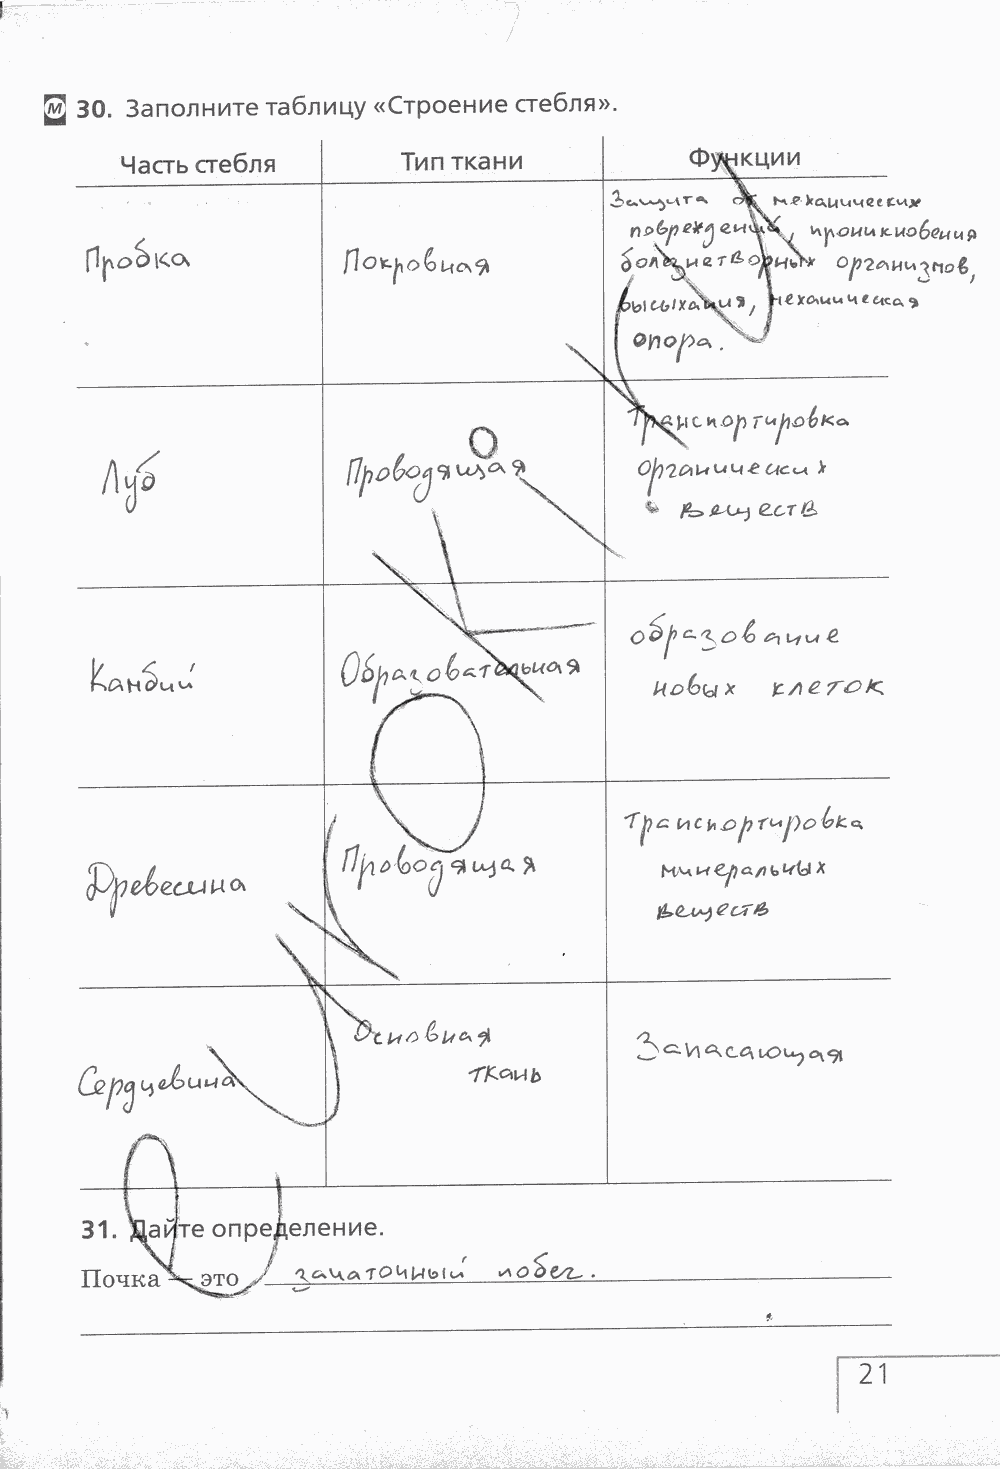 М 30. Заполните таблицу «Строение стебля».
Часть стебля Тип ткани Функции
Пробка Покровная Защита от механических
повреждений, проникновения
болезнетворных организмов,
высыхания, механическая
опора.
Луб Проводящая Транспортировка
органических
веществ
Камбий Образовательная образование
новых клеток
Древесина Проводящая транспортировка
минеральных
веществ
Сердцевина Основная
ткань Запасающая
31. Дайте определение.
Почка — это зачаточный побег.
21